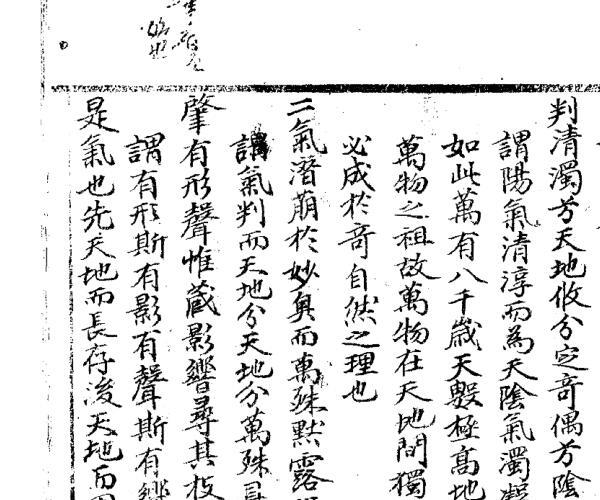 判清濁芳天地攸分定竒偶芳陰
謂陽氣清淳而為天陰氣濁凝
如此萬有八千歲天數極高地
萬物之祖故萬物在天地間獨
必成於竒自然之理也
二氣潛萌於妙奥而萬殊黙露
謂氣判而天地分天地分萬殊
肇有形聲惟藏影響尋其
謂有形斯有影有聲斯有響
是氣也先天地而長存後天地而